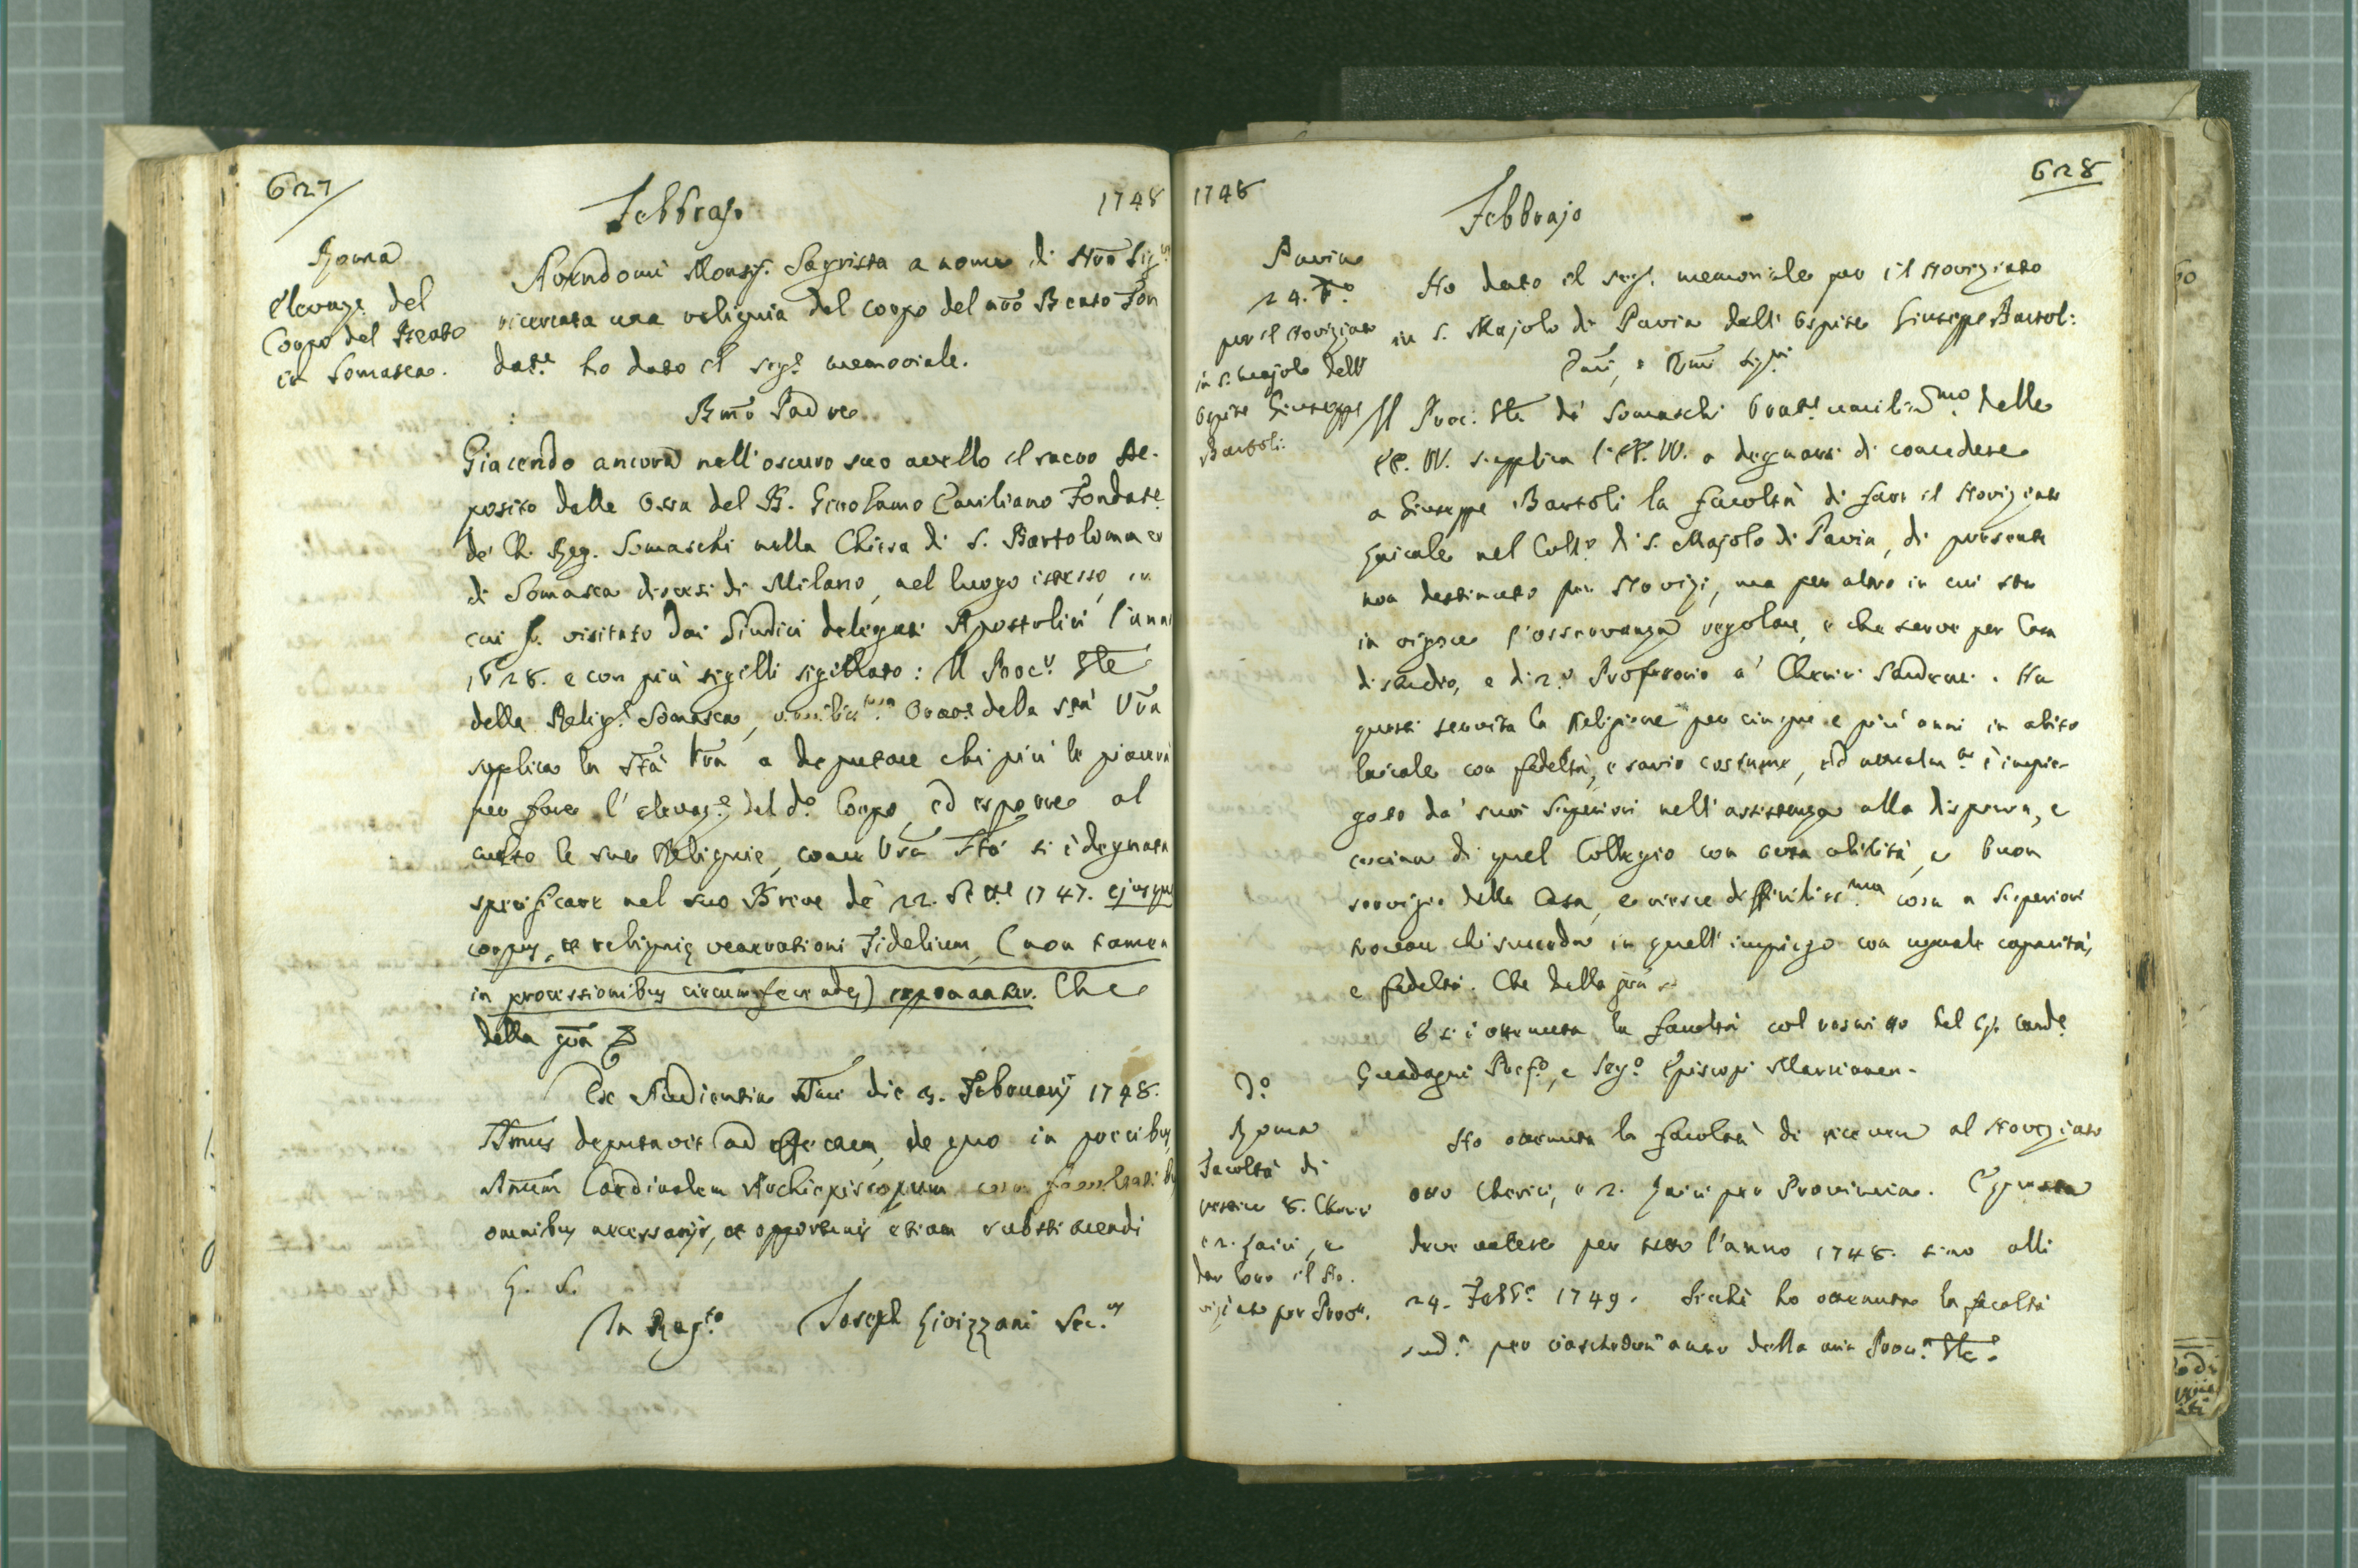 627
Febbrajo
1748
Roma
Elevaz.e del
Corpo del Beato
in Somasca.
Avendomi Monsig.r Sagrista a nome di Nrō Sig.re
ricercata una reliquia del corpo del nrō Beato Fon
dat.e ho dato il seg.e memoriale.
Bmō Padre
Giacendo ancora nell'oscuro suo avello il sacro De-
posito delle Ossa del B. Girolamo Emiliano Fondat.e
de' Ch. Reg. Somaschi nella Chiesa di S. Bartolomeo
di Somasca diocesi di Milano, nel luogo istesso, in
cui fu visitato dai Giudici delegati Apostolici l'anno
1628. e con più sigilli sigillato: Il Proc.r Gle
della Relig.e Somasca, umilis.mo Orat.e della S.tà Vrā
supplica la Stà Vrā a deputare chi più le piacerà
per fare l'elevaz.e del d.o Corpo, ed esporre al
culto le sue Reliquie, come Vrā Stà si è degnata
specificare nel suo Breve de' 22. Sett.e 1747. ejusque
corpus, et reliquię venerationi Fidelium, (non tamen
in processionibus circumferendęs) exponantur. Che
della grā
Ex Audientia SSmi die 3. Februarij 1748.
SSmus deputavit ad effectum, de quo in precibus,
Emūm Cardinalem Archiepiscopum cum facultatibus
omnibus necessarijs, et opportunis etiam substituendi
In Reg.to Joseph Livizzani Sec.us
1748
Febbrajo
628
Pavia
24. d.o
per il Noviziato
in S. Majolo dell'
Ospite Giuseppe
Bartoli:
Ho dato il seg.e memoriale per il Noviziato
in S. Majolo di Pavia dell'Ospite Giuseppe Bartoli:
Emī, e Rmī Sig.ri
Il Proc. Gle de' Somaschi Orat.e umilis.mo delle
EE. VV. supplica l'EE. VV. a degnarsi di concedere
a Giuseppe Bartoli la facoltà di fare il Noviziato
Laicale nel Coll.o di S. Majolo di Pavia, di presente
non destinato per Novizj, ma per altro in cui sta
in vigore l'osservanza regolare, e che serve per Casa
di studio, e di 2.o Professorio a' Cherici Studenti. Ha
questi servita la Religione per cinque e più anni in abito
laicale con fedeltà, e savio costume, ed attualm.te è impie-
gato da' suoi Superiori nell'assistenza alla dispensa, e
cucina di quel Collegio con tutta abilità, e buon
servizio della Casa, e riesce difficiliss.ma cosa a Superiori
trovare chi succeda in quell'impiego con uguale capacità,
e fedeltà. Che della grā
E si è ottenuta la facoltà col rescritto del Sig. Card.e
Guadagni Pref.o, e Seg.o Episcopi
D.o
Roma
Facoltà di
vestire 8. Cherici
e 2. Laici, e
dar loro il No-
viziato per Prov.a
Ho ottenuta la facoltà di ricevere al Noviziato
otto Cherici, e 2. Laici per Provincia. E questa
deve valere per tutto l'anno 1748. sino alli
24. Febb.o 1749. Sicchè ho ottenuta la facoltà
sud.a per ciaschedun anno della mia Proc.a Gle.